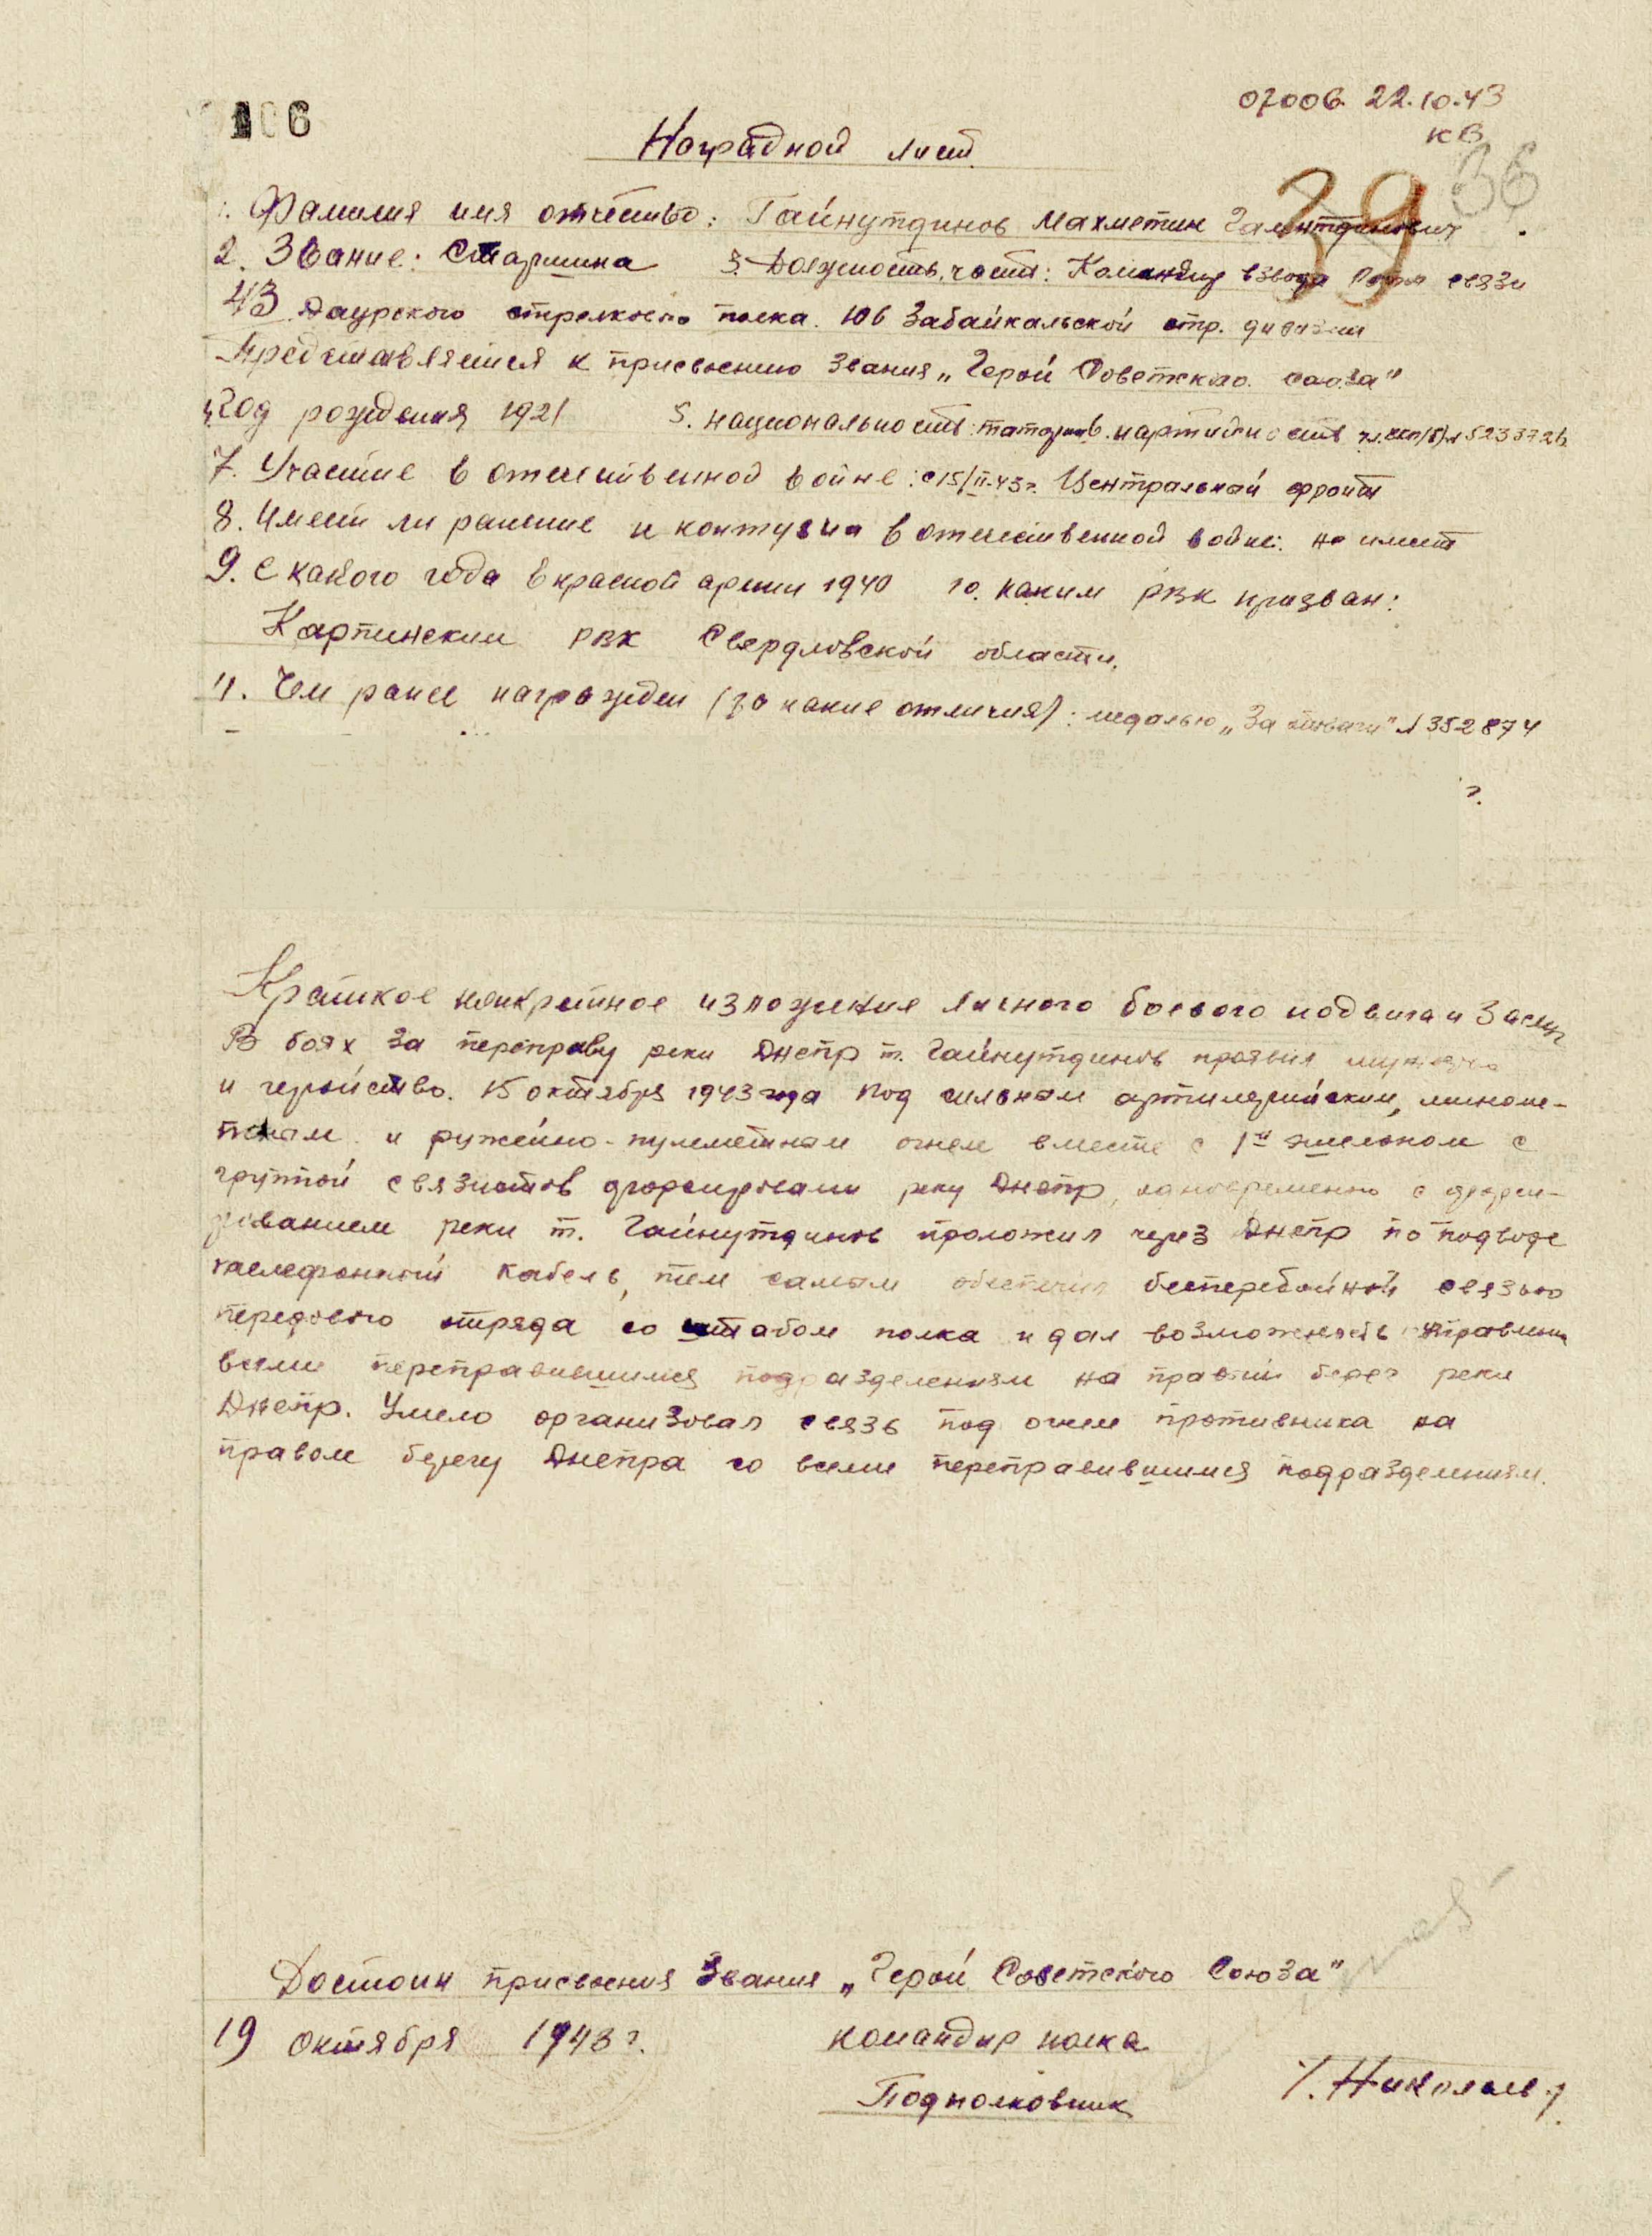 106
07006. 22.10.43
КВ
39 36
Наградной лист
1. Фамилия имя отчество: Гайнутдинов Махметин
2. Звание: Старшина 3. Должность, часть: Командир взвода Роты связи
43 Даурского стрелкового полка. 106 Забайкальской стр. дивизии
Представляется к присвоению звания „Герой Советского союза"
4. Год рождения 1921 5. национальность: татарин 6. партийность
7. Участие в отечественной войне: с 15/II-43г. Центральный фронт
8. Имеет ли ранение и контузии в отечественной войне: не имеет
9. С какого года в красной армии 1940 10. каким РВК призван:
Карпинским РВК Свердловской области.
11. Чем ранее награжден (за какие отличия): медалью „За отвагу" № 352874
г.
Краткое конкретное изложение личного боевого подвига и заслуг
В боях за переправу реки Днепр т. Гайнутдинов проявил мужество
и геройство. 15 октября 1943 года под сильным артилерийским, миноме-
тным и ружейно-пулеметным огнем вместе с 1м эшелоном с
группой связистов форсировали реку Днепр, одновременно с форси-
рованием реки т. Гайнутдинов проложил через Днепр по подводе
телефонный кабель, тем самым обеспечил бесперебойной связью
передового отряда со штабом полка и дал возможность управлять
всеми переправившимся подразделениям на правый берег реки
Днепр. Умело организовал связь под огнем противника на
правом берегу Днепра со всеми переправившимся подразделениям.
Достоин присвоения Звания „Герой Советского Союза"
19 октября 1943 г. командир полка
Подполковник /. Николаев /